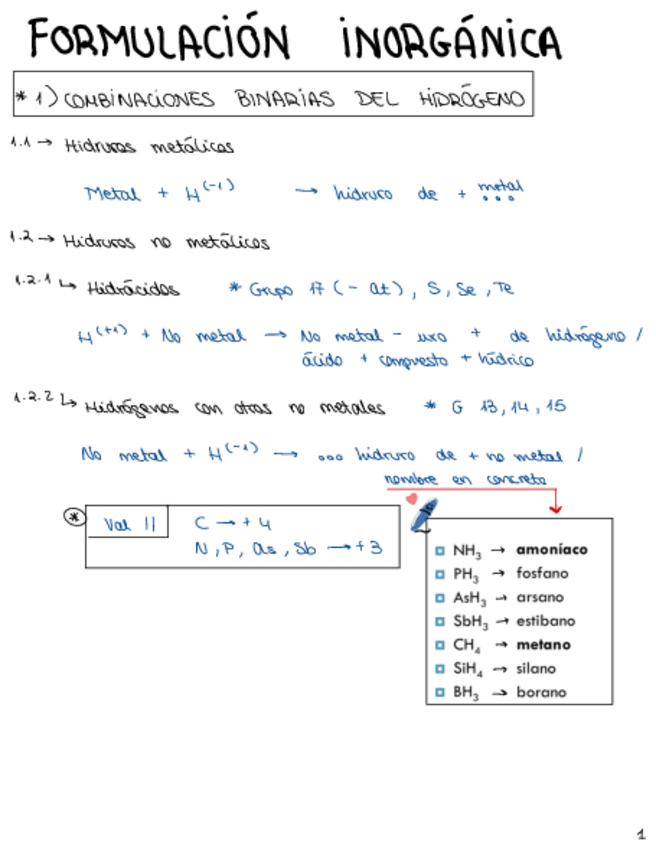 FORMULACIÓN INORGÁNICA
* 1) COMBINACIONES BINARIAS DEL HIDRÓGENO
1.1 → Hidruros metálicos
Metal + H(-1) → hidruro de + metal
1.2 → Hidruros no metálicos
1.2.1 ↳ Hidrácidos * Grupo 17 (- At), S, Se, Te
H(+1) + No metal → No metal - uro + de hidrógeno /
ácido + compuesto + hídrico
1.2.2 ↳ Hidrógenos con otros no metales * G 13, 14, 15
No metal + H(-1) → ... hidruro de + no metal /
nombre en concreto
* Val || C → +4
N, P, As, Sb → +3
NH₃ → amoníaco
PH₃ → fosfano
AsH₃ → arsano
SbH₃ → estibano
CH₄ → metano
SiH₄ → silano
BH₃ → borano
1